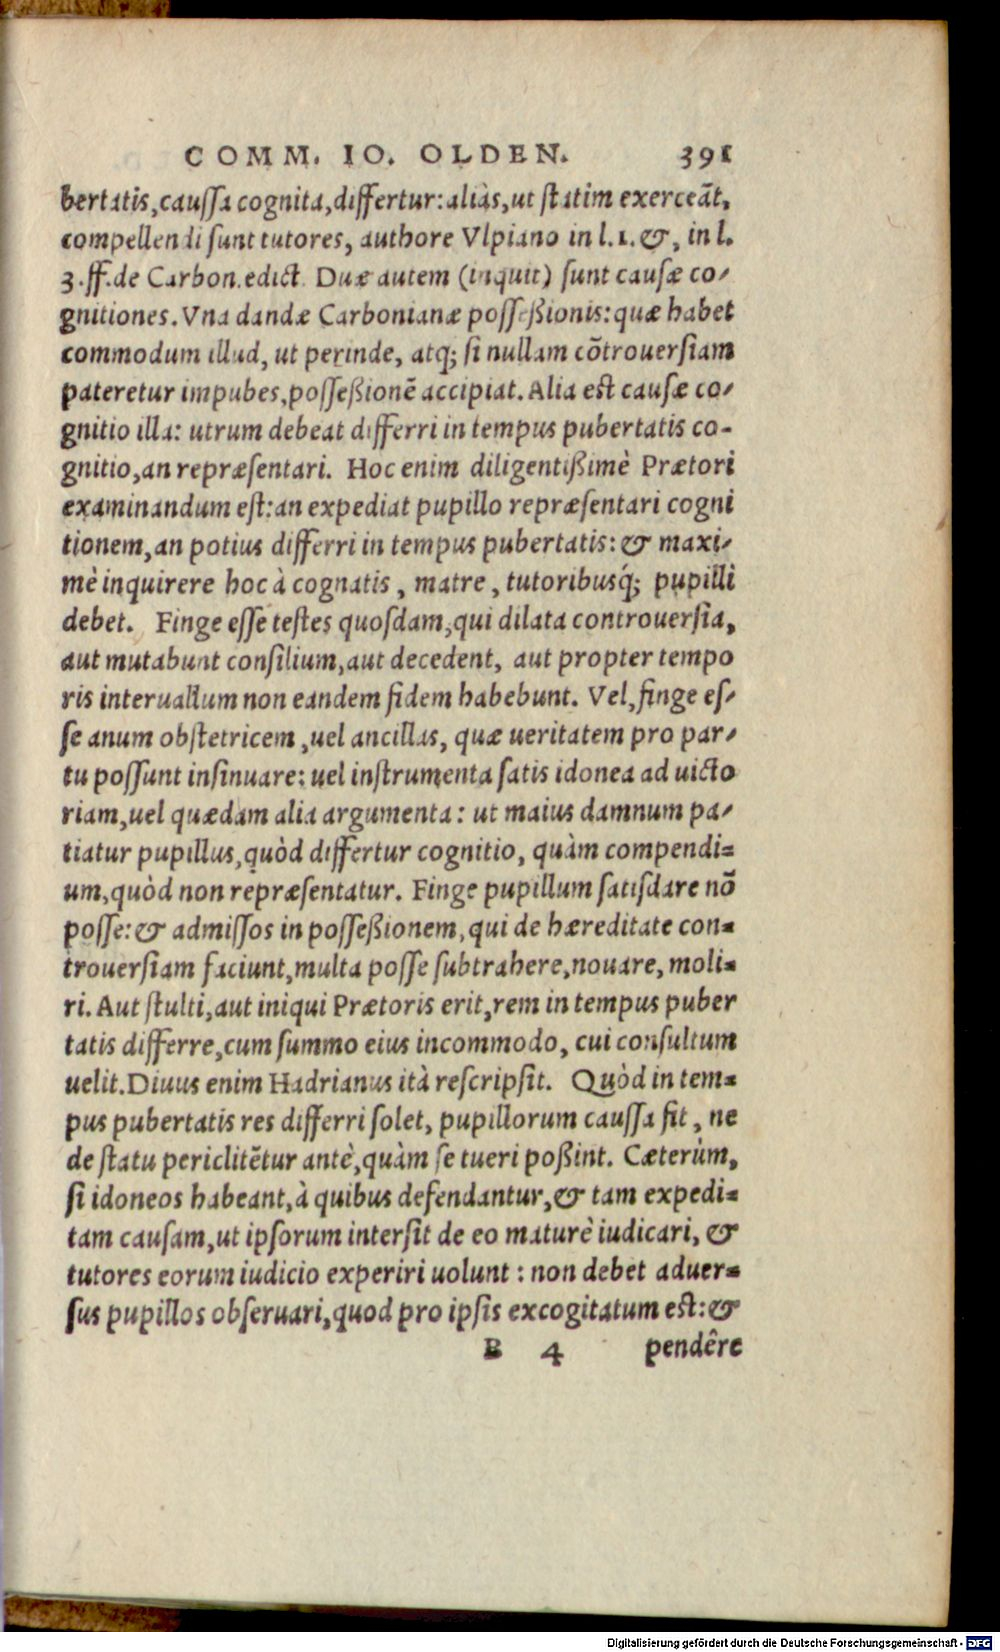 COMM. IO. OLDEN. 391
bertatis, caussa cognita, differtur: aliàs, ut statim exerceãt,
compellendi sunt tutores, authore Vlpiano in l. 1. &, in l.
3. ff. de Carbon. edict. Duæ autem (inquit) sunt causæ co-
gnitiones. Vna dandæ Carbonianæ possessionis: quæ habet
commodum illud, ut perinde, atq; si nullam cõtrouersiam
pateretur impubes, possessionẽ accipiat. Alia est causæ co-
gnitio illa: utrum debeat differri in tempus pubertatis co-
gnitio, an repræsentari. Hoc enim diligentißimè Prætori
examinandum est: an expediat pupillo repræsentari cogni
tionem, an potius differri in tempus pubertatis: & maxi-
mè inquirere hoc à cognatis, matre, tutoribusq́; pupilli
debet. Finge esse testes quosdam, qui dilata controuersia,
aut mutabunt consilium, aut decedent, aut propter tempo
ris interuallum non eandem fidem habebunt. Vel, finge es-
se anum obstetricem, uel ancillas, quæ ueritatem pro par-
tu possunt insinuare: uel instrumenta satis idonea ad uicto
riam, uel quædam alia argumenta: ut maius damnum pa-
tiatur pupillus, quòd differtur cognitio, quàm compendi=
um, quòd non repræsentatur. Finge pupillum satisdare nõ
posse: & admissos in posseßionem, qui de hæreditate con=
trouersiam faciunt, multa posse subtrahere, nouare, moli=
ri. Aut stulti, aut iniqui Prætoris erit, rem in tempus puber
tatis differre, cum summo eius incommodo, cui consultum
uelit. Diuus enim Hadrianus ità rescripsit. Quòd in tem=
pus pubertatis res differri solet, pupillorum caussa fit, ne
de statu periclitẽtur antè, quàm se tueri poßint. Cæterùm,
si idoneos habeant, à quibus defendantur, & tam expedi=
tam causam, ut ipsorum intersit de eo maturè iudicari, &
tutores eorum iudicio experiri uolunt: non debet aduer=
sus pupillos obseruari, quod pro ipsis excogitatum est: &
B 4 pendêre
Digitalisierung gefördert durch die Deutsche Forschungsgemeinschaft - DFG